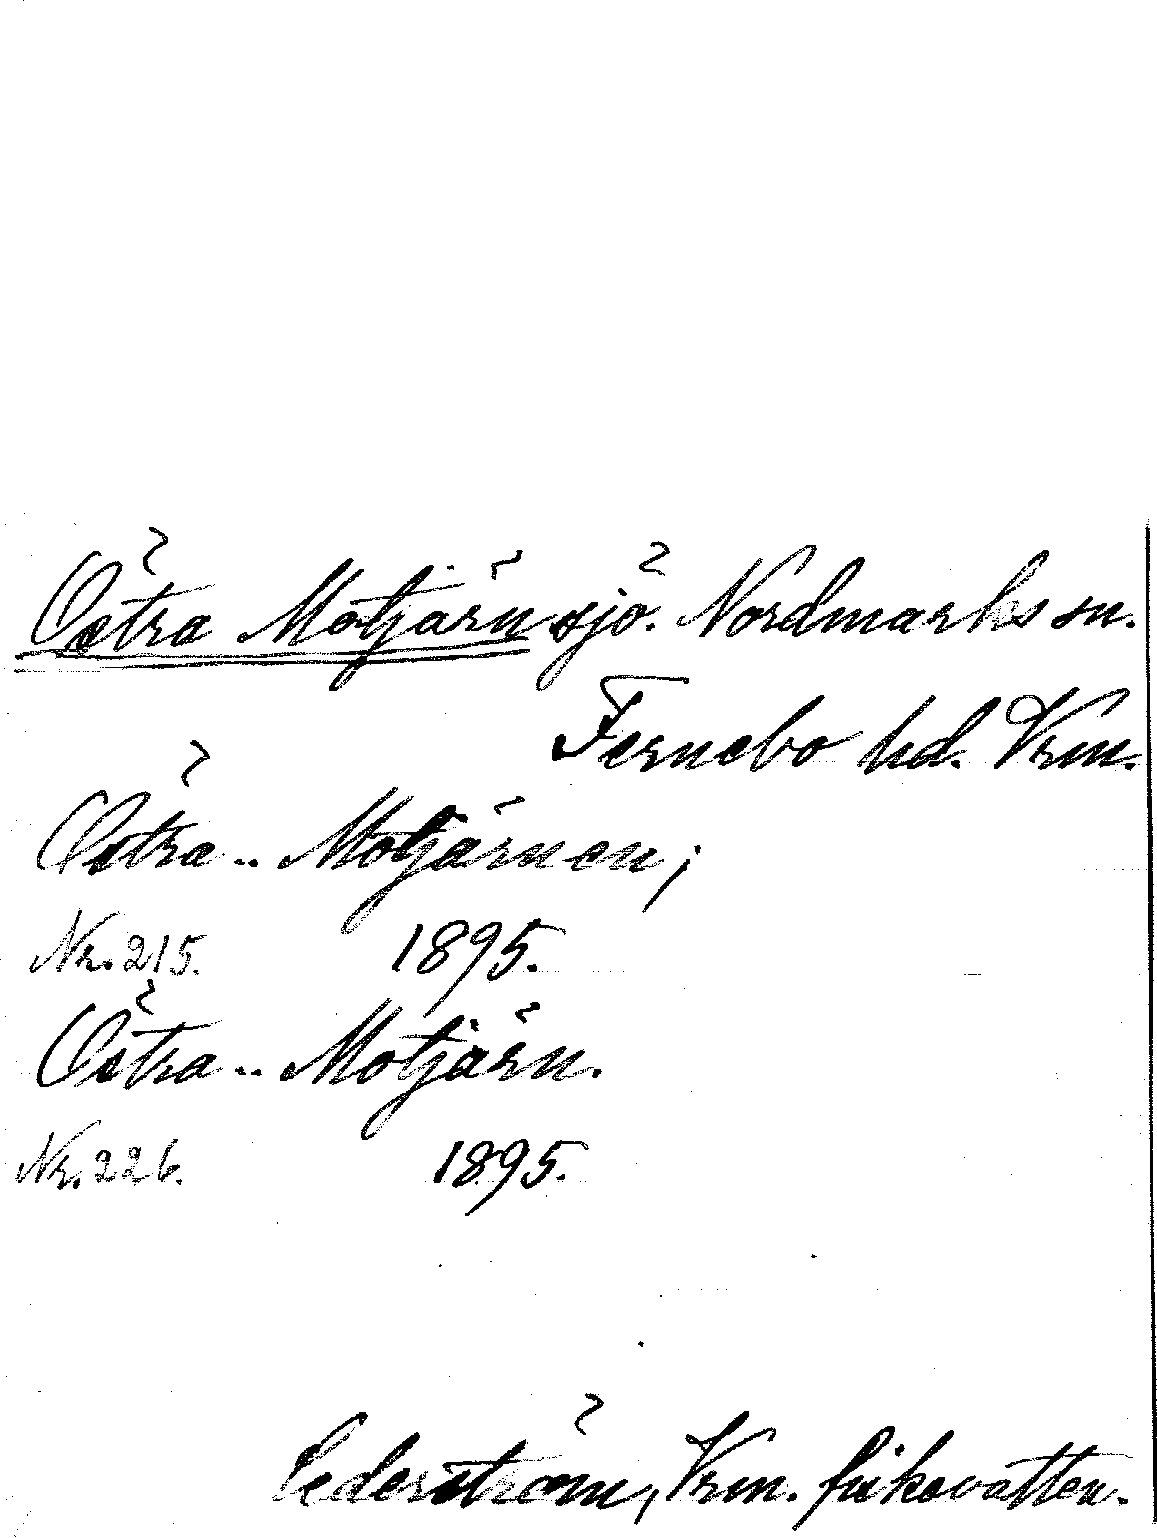 Östra Motjärn sjö. Nordmarks sn.
Fernebo hd. Vrm.
Östra .. Motjärnen;
Nr. 215. 1895.
Östra .. Motjärn.
Nr. 226. 1895.
Cederström, Vrm. fiskevatten.